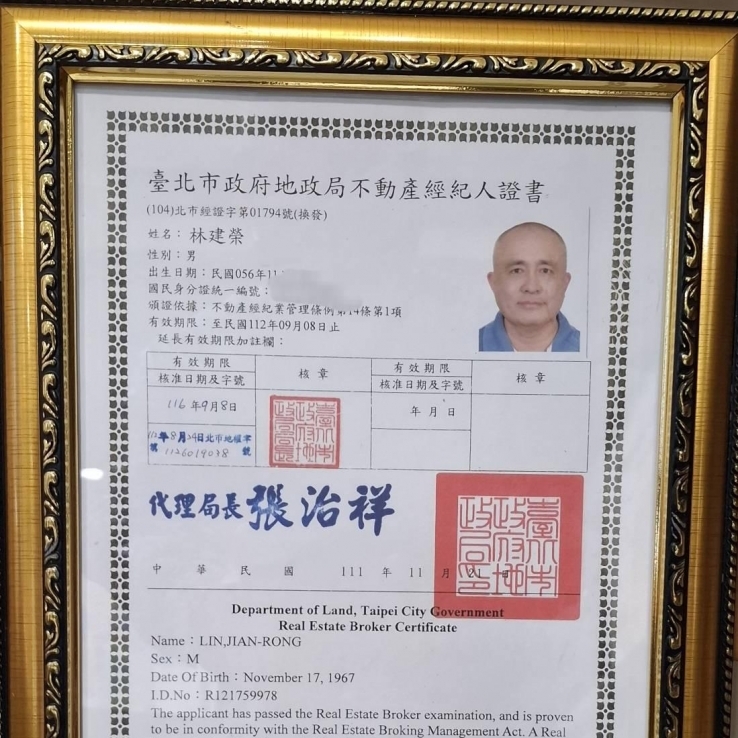 臺北市政府地政局不動產經紀人證書
(104)北市經證字第01794號(換發)
姓名：林建榮
性別：男
出生日期：民國056年11
國民身分證統一編號：
頒證依據：不動產經紀業管理條例第14條第1項
有效期限：至民國112年09月08日止
延長有效期限加註欄：
有效期限 核章 有效期限 核章
核准日期及字號 核准日期及字號
116年9月8日 年月日
112年8月29日北市地權津
第1126019038號
臺北市政府地政局長
代理局長 張治祥
臺北市政府地政局印
中華民國 111 年 11 月 21
Department of Land, Taipei City Government
Real Estate Broker Certificate
Name：LIN,JIAN-RONG
Sex：M
Date Of Birth：November 17, 1967
I.D.No：R121759978
The applicant has passed the Real Estate Broker examination, and is proven
to be in conformity with the Real Estate Broking Management Act. A Real